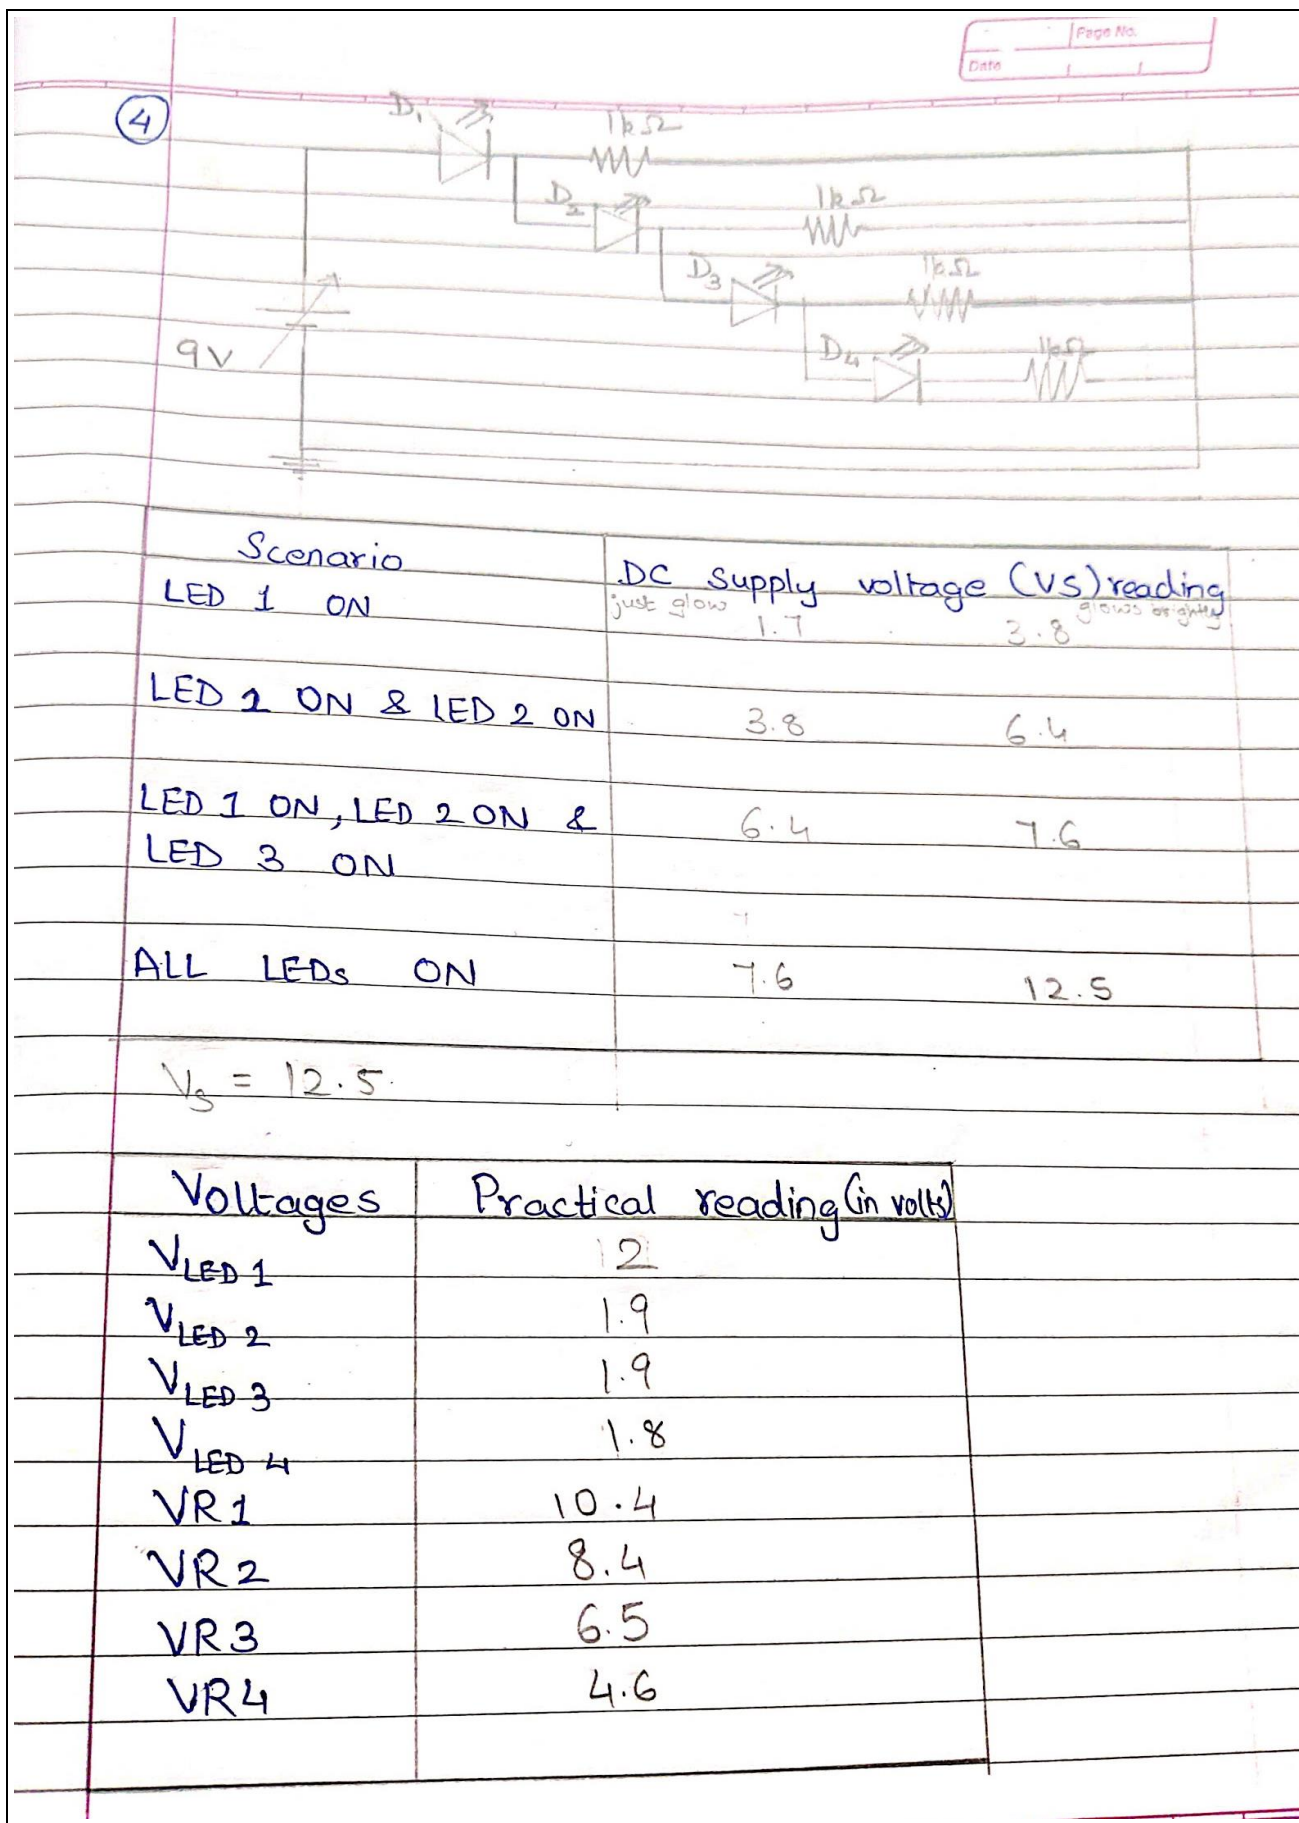 Page No.
Date
4
D1 1kΩ
D2 1kΩ
D3 1kΩ
9V D4 1kΩ
Scenario DC Supply voltage (VS) reading
LED 1 ON just glow 1.7 glows brightly 3.8
LED 1 ON & LED 2 ON 3.8 6.4
LED 1 ON, LED 2 ON & 6.4 7.6
LED 3 ON
ALL LEDs ON 7.6 12.5
VS = 12.5
Voltages Practical reading (in volts)
VLED 1 2
VLED 2 1.9
VLED 3 1.9
VLED 4 1.8
VR1 10.4
VR2 8.4
VR3 6.5
VR4 4.6